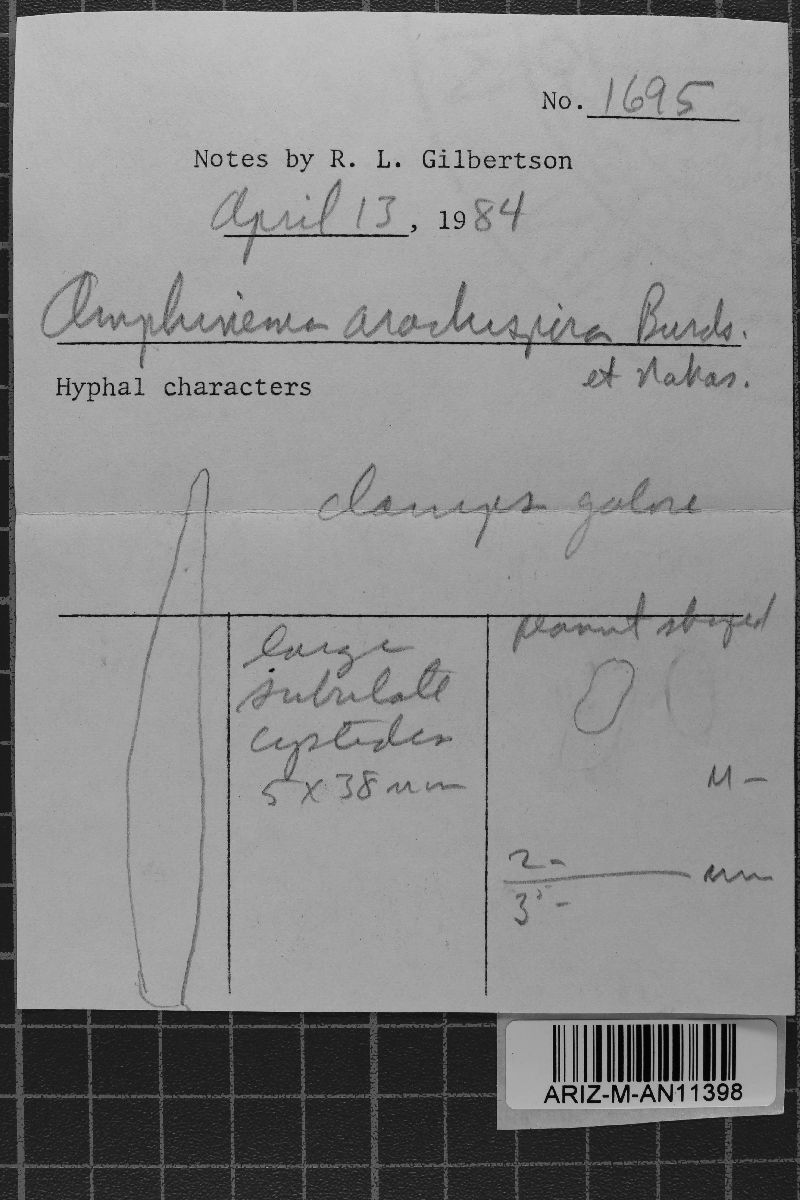 No. 1695
Notes by R. L. Gilbertson
April 13, 1984
Amphinema arachispora Burds.
et Nakas.
Hyphal characters
clamps galore
large
subulate
cystidia
5 x 38 mm
peanut shaped
M -
2 -
3 - mm
ARIZ-M-AN11398